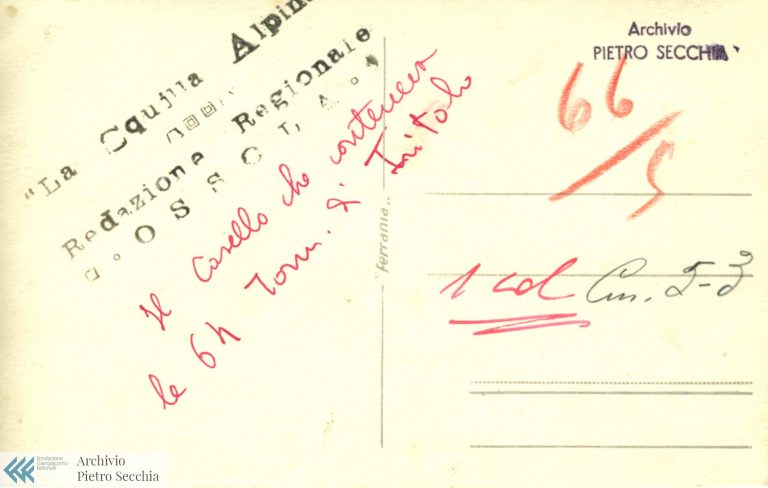 "La Squilla Alpina
Redazione Regionale
OSSOLA
Il casello che conteneva
le 64 Tonn. di Tritolo
"Ferrania"
Archivio
PIETRO SECCHIA
66/5
1 col Cm. 5-3
Fondazione
Giangiacomo
Feltrinelli
Archivio
Pietro Secchia